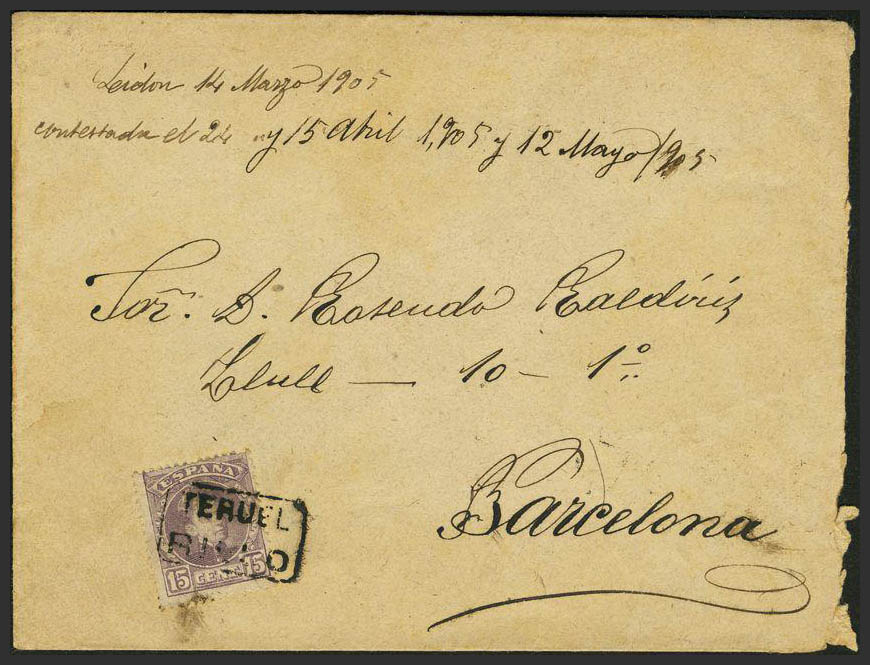 14 Marzo 1905
contestada el 24 y 15 Abril 1,905 y 12 Mayo/905
Sor. D. Rosendo Galdiris
Llull — 10 — 1º
Barcelona
ESPAÑA
TERUEL
15 CENT 15